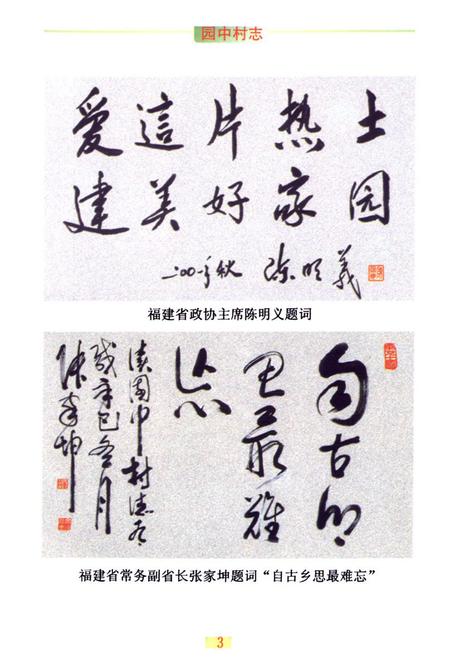 园中村志
爱這片热土
建美好家园
二00一年秋 陈明義
福建省政协主席陈明义题词
自古乡
思最難
忘
读园中村志有
感辛巳冬月
张家坤
福建省常务副省长张家坤题词“自古乡思最难忘”
3